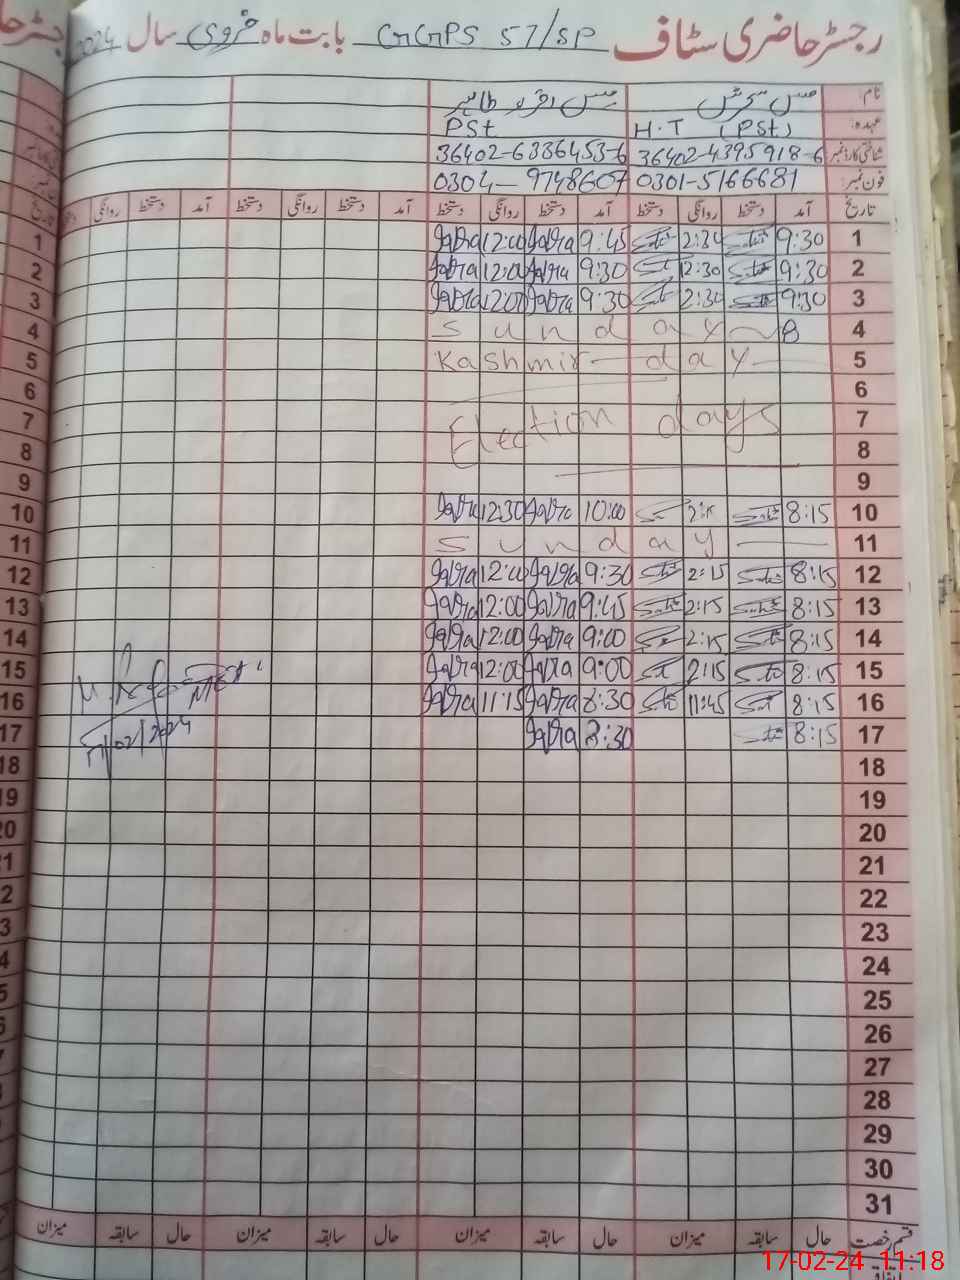 رجسٹر حاضری سٹاف GGPS 57/SP بابت ماہ فروری سال 2024
نام: مس سحرش مس اقراء طاہر
عہدہ: H.T (PSt) PSt
شناختی کارڈ نمبر 36402-4395918-6 36402-6386453-6
فون نمبر: 0301-5166681 0304-9748607
تاریخ آمد دستخط روانگی دستخط آمد دستخط روانگی دستخط آمد دستخط روانگی دستخط آمد دستخط روانگی
1 9:30 2:30 9:45 Iqra 12:00 Iqra
2 9:30 12:30 9:30 Iqra 12:00 Iqra
3 9:30 2:30 9:30 Iqra 12:00 Iqra
4 Sunday
5 Kashmir day
6
7 Election days
8
9
10 8:15 10:00 Iqra 12:30 Iqra
11 Sunday
12 8:15 2:15 9:30 Iqra 12:00 Iqra
13 8:15 2:15 9:45 Iqra 12:00 Iqra
14 8:15 2:15 9:00 Iqra 12:00 Iqra
15 8:15 2:15 9:00 Iqra 12:00 Iqra
16 8:15 11:45 8:30 Iqra 11:15 Iqra
17 8:15 8:30 Iqra
17/02/2024
18
19
20
21
22
23
24
25
26
27
28
29
30
31
قسم رخصت حال سابقہ میزان حال سابقہ میزان حال سابقہ میزان حال سابقہ میزان
17-02-24 11:18